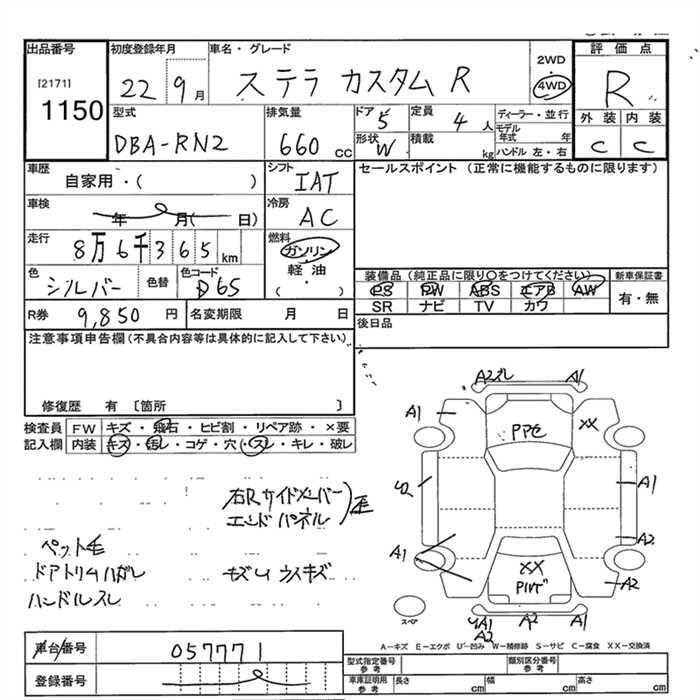 出品番号
[2171]
1150
初度登録年月
22 9月
車名・グレード
ステラ カスタム R
2WD
4WD
評価点
R
外装 内装
C C
型式
DBA-RN2
排気量
660 cc
ドア 5
形状 W
定員 4 人
積載 kg
ディーラー・並行
モデル年式 年
ハンドル 左・右
車歴
自家用・( )
シフト
IAT
セールスポイント (正常に機能するものに限ります)
車検
年 月( 日)
冷房
AC
走行
8万6千365 km
燃料
ガソリン
軽油
( )
色
シルバー
色替
色コード
D65
装備品(純正品に限り○をつけてください)
PS PW ABS エアB AW
SR ナビ TV カワ
新車保証書
有・無
R券 9,850 円
名変期限 月 日
後日品
注意事項申告欄(不具合内容等は具体的に記入して下さい)
修復歴 有 〔箇所 〕
検査員記入欄
FW キズ・飛石・ヒビ割・リペア跡・×要
内装 キズ・汚レ・コゲ・穴・スレ・キレ・破レ
右Rサイドメンバー
エンドパネル
歪
ペット毛
ドアトリムハガレ
ハンドルスレ
モズレ ウスキズ
A2ズレ A1
A1 XX
PPC
A1
A2
A1
XX
A2
A2
A1
A2
スペア
A-キズ E-エクボ U-凹み W-補修跡 S-サビ C-腐食 XX-交換済
車台番号
057771
登録番号
型式指定番号 参考
類別区分番号 参考
車庫証明用 参考
長さ cm 幅 cm 高さ cm